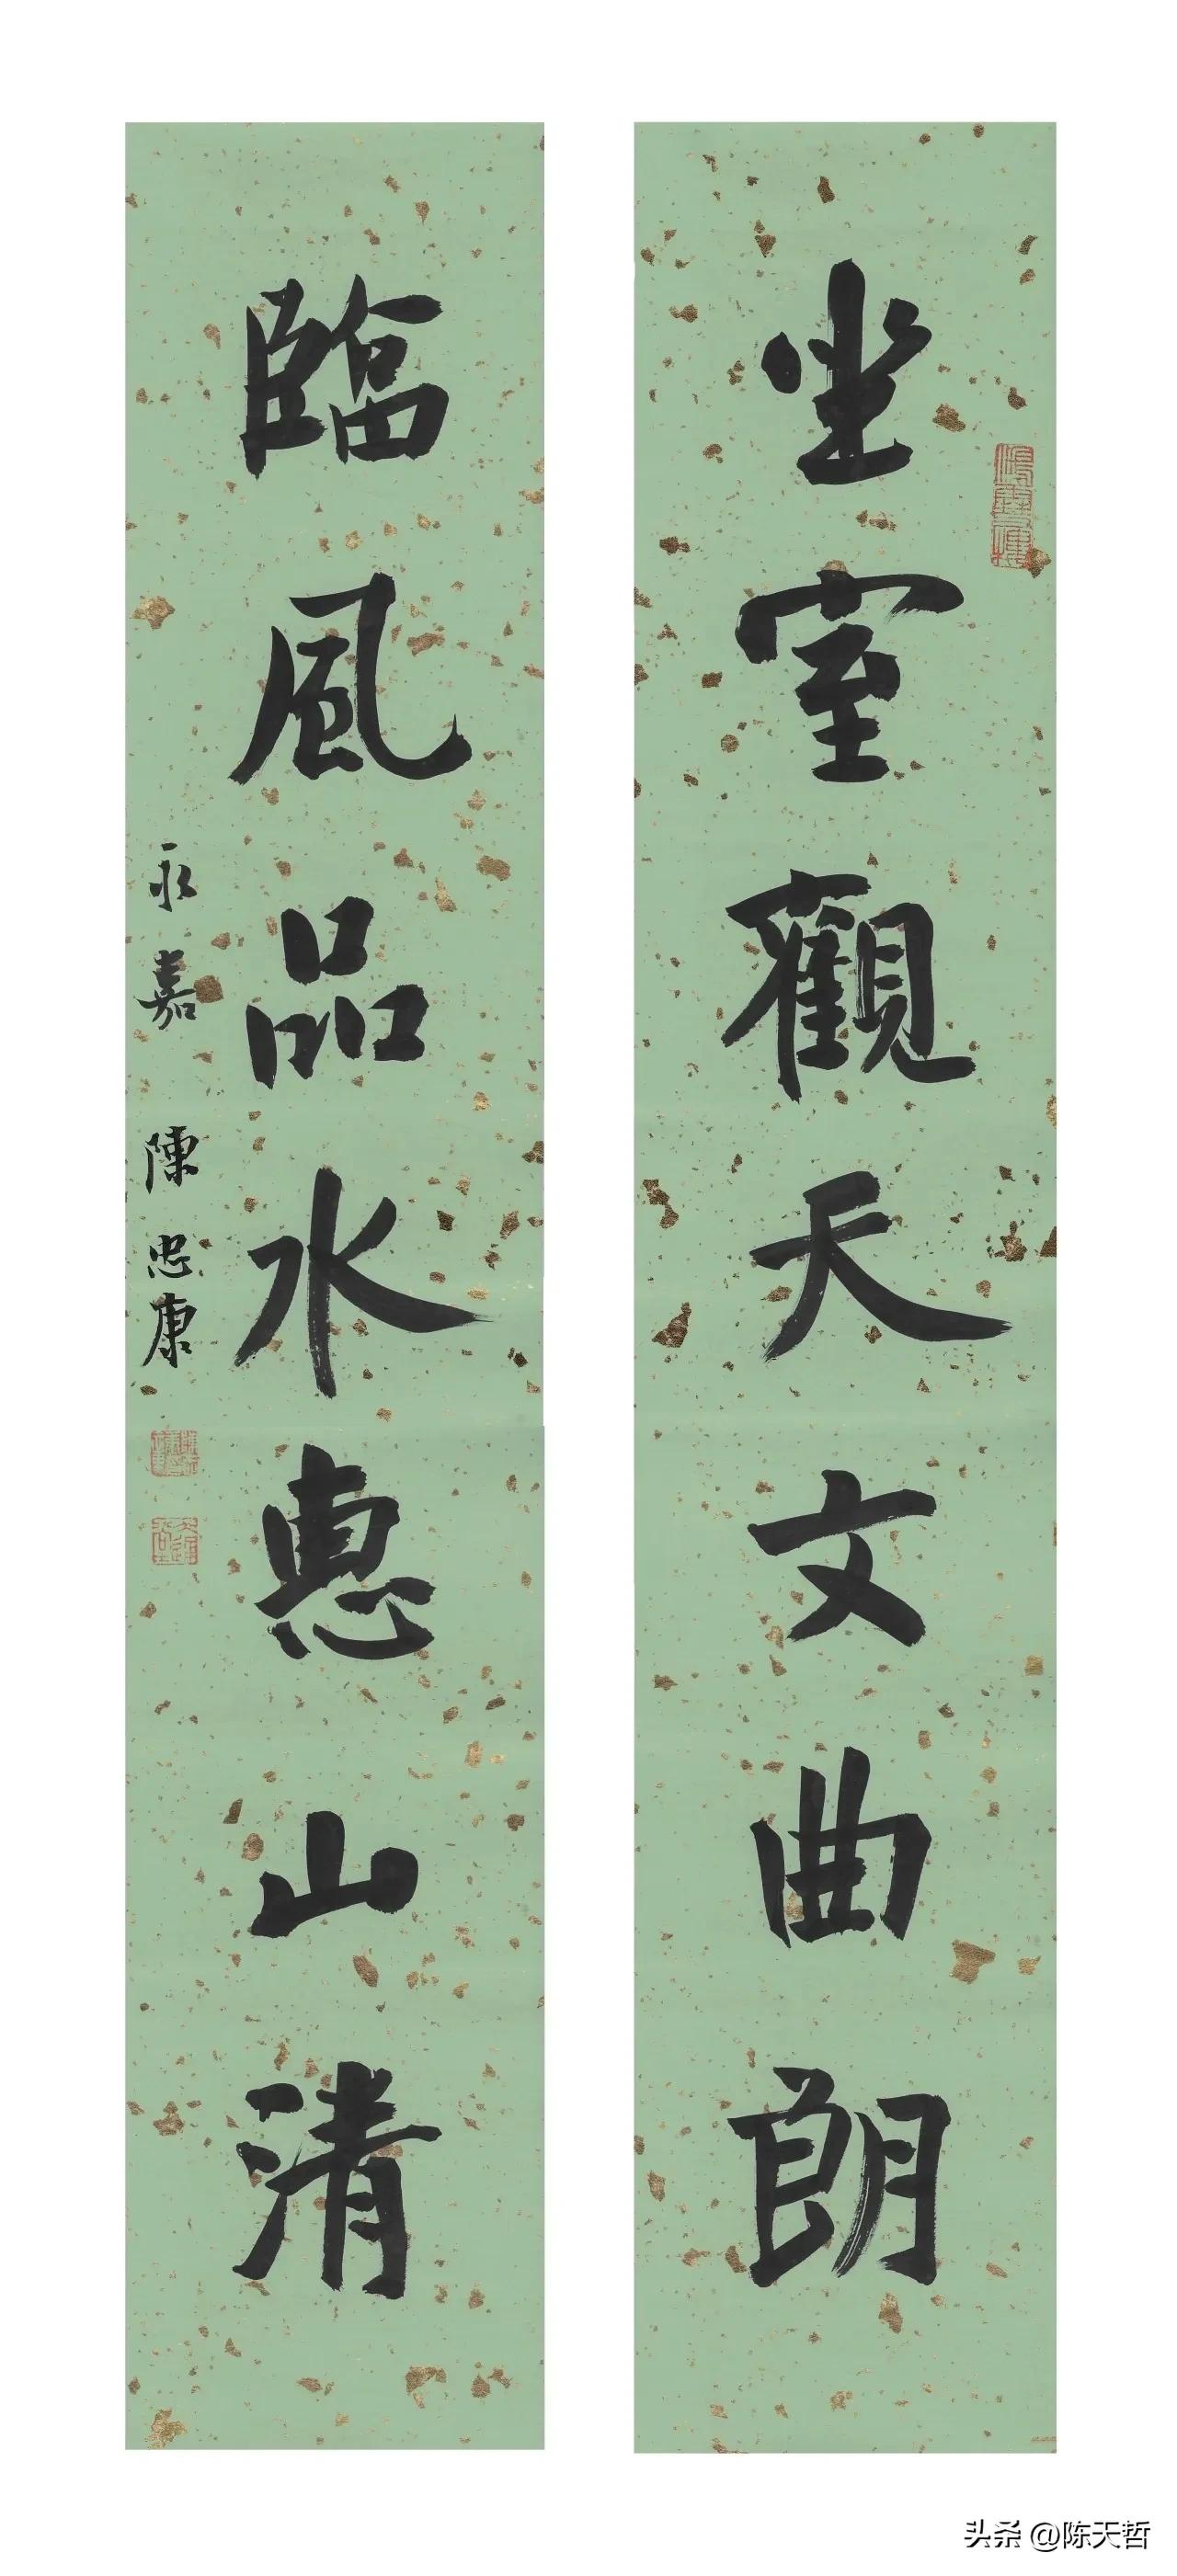 坐室觀天文曲朗
臨風品水惠山清
永嘉 陳忠康
头条 @陈天哲